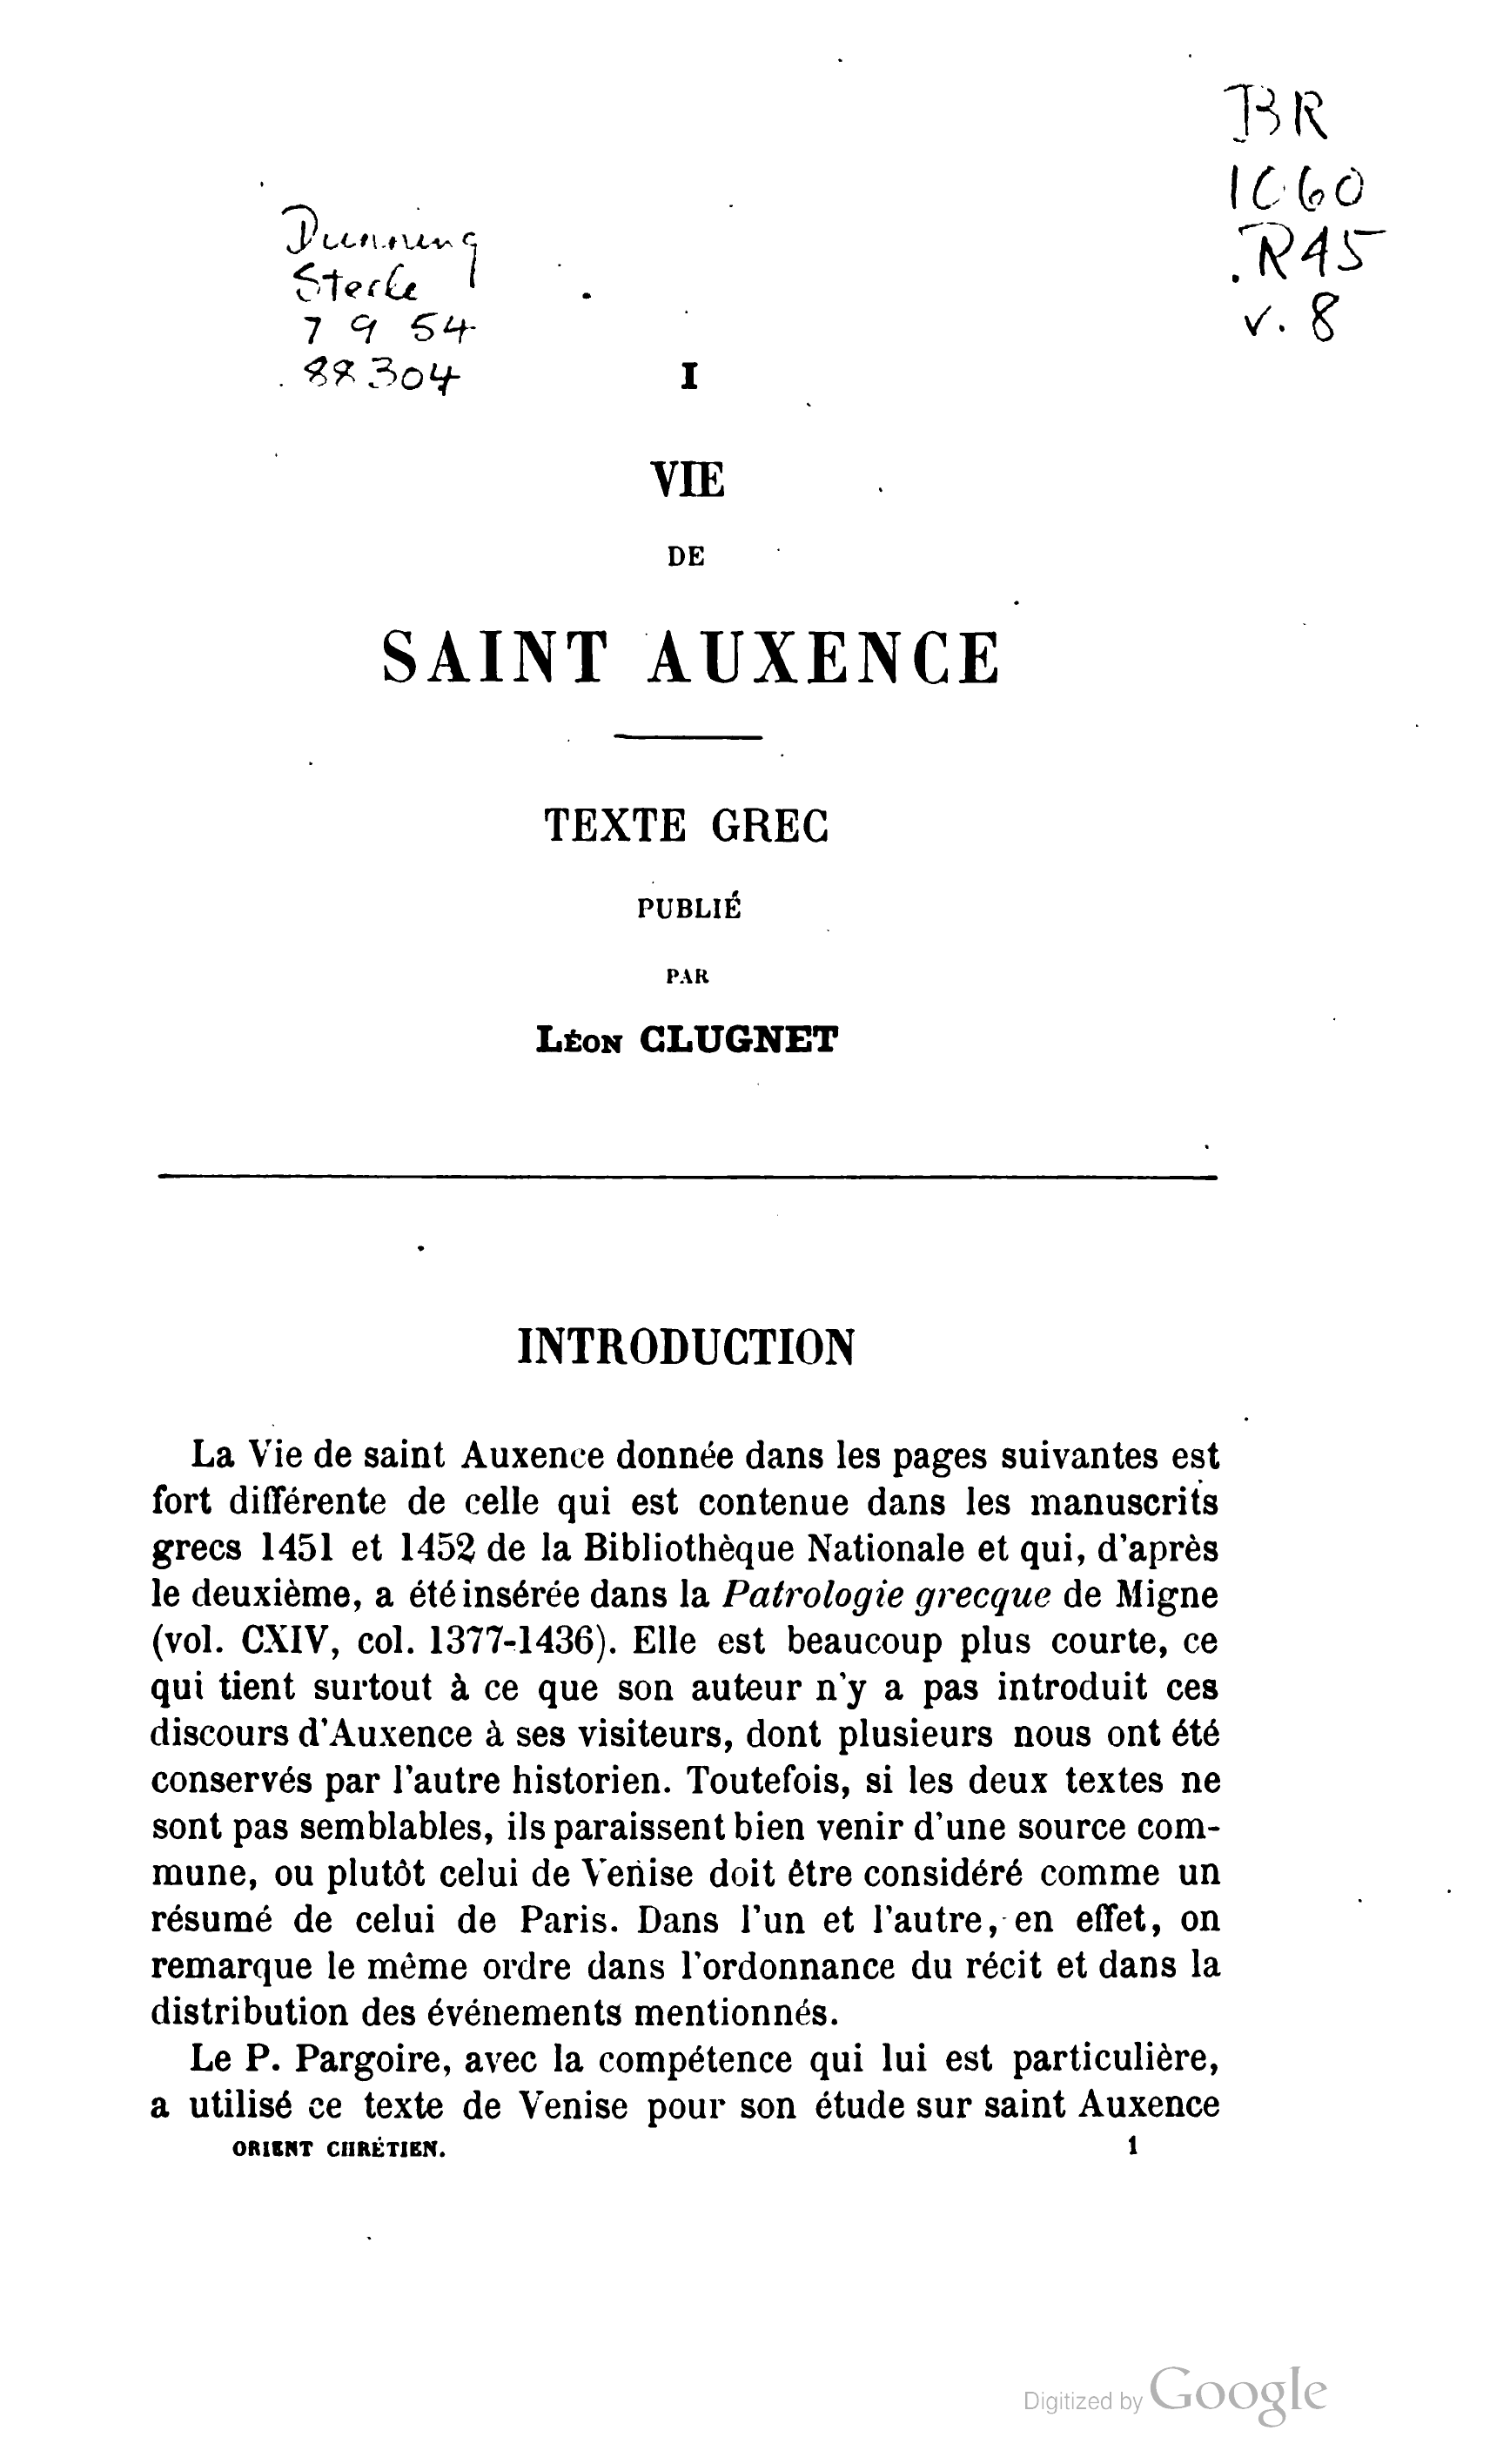 BR
1060
.R45
v. 8
Dunning
7 9 54
88304
I
VIE
DE
SAINT AUXENCE
TEXTE GREC
PUBLIÉ
PAR
LÉON CLUGNET
INTRODUCTION
La Vie de saint Auxence donnée dans les pages suivantes est
fort différente de celle qui est contenue dans les manuscrits
grecs 1451 et 1452 de la Bibliothèque Nationale et qui, d'après
le deuxième, a été insérée dans la Patrologie grecque de Migne
(vol. CXIV, col. 1377-1436). Elle est beaucoup plus courte, ce
qui tient surtout à ce que son auteur n'y a pas introduit ces
discours d'Auxence à ses visiteurs, dont plusieurs nous ont été
conservés par l'autre historien. Toutefois, si les deux textes ne
sont pas semblables, ils paraissent bien venir d'une source com-
mune, ou plutôt celui de Venise doit être considéré comme un
résumé de celui de Paris. Dans l'un et l'autre, en effet, on
remarque le même ordre dans l'ordonnance du récit et dans la
distribution des événements mentionnés.
Le P. Pargoire, avec la compétence qui lui est particulière,
a utilisé ce texte de Venise pour son étude sur saint Auxence
ORIENT CHRÉTIEN. 1
Digitized by Google